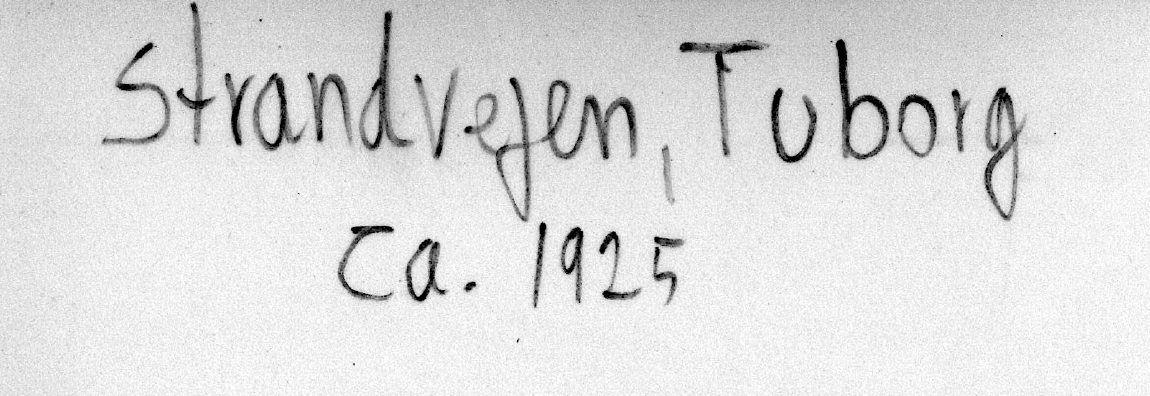 Strandvejen, Tuborg
Ca. 1925